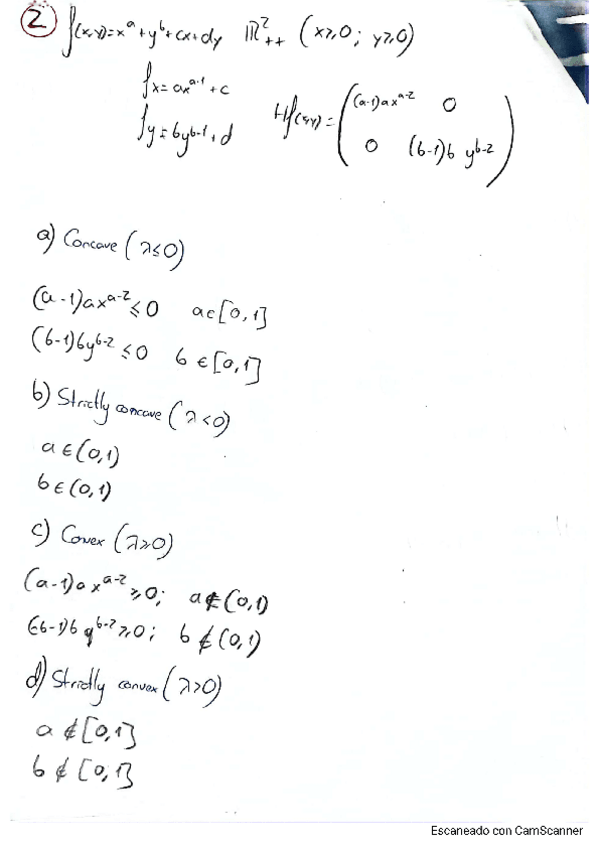 ② f(x,y)=xᵃ+yᵇ+cx+dy ℝ²₊₊ (x≥0; y≥0)
fx=axᵃ⁻¹+c
fy=byᵇ⁻¹+d
Hf(x,y)= ( (a-1)axᵃ⁻² 0
0 (b-1)b yᵇ⁻² )
a) Concave (λ≤0)
(a-1)axᵃ⁻²≤0 a∈[0,1]
(b-1)byᵇ⁻²≤0 b∈[0,1]
b) Strictly concave (λ<0)
a∈(0,1)
b∈(0,1)
c) Convex (λ≥0)
(a-1)a xᵃ⁻²≥0; a∉(0,1)
(b-1)b yᵇ⁻²≥0; b∉(0,1)
d) Strictly convex (λ>0)
a∉[0,1]
b∉[0,1]
Escaneado con CamScanner